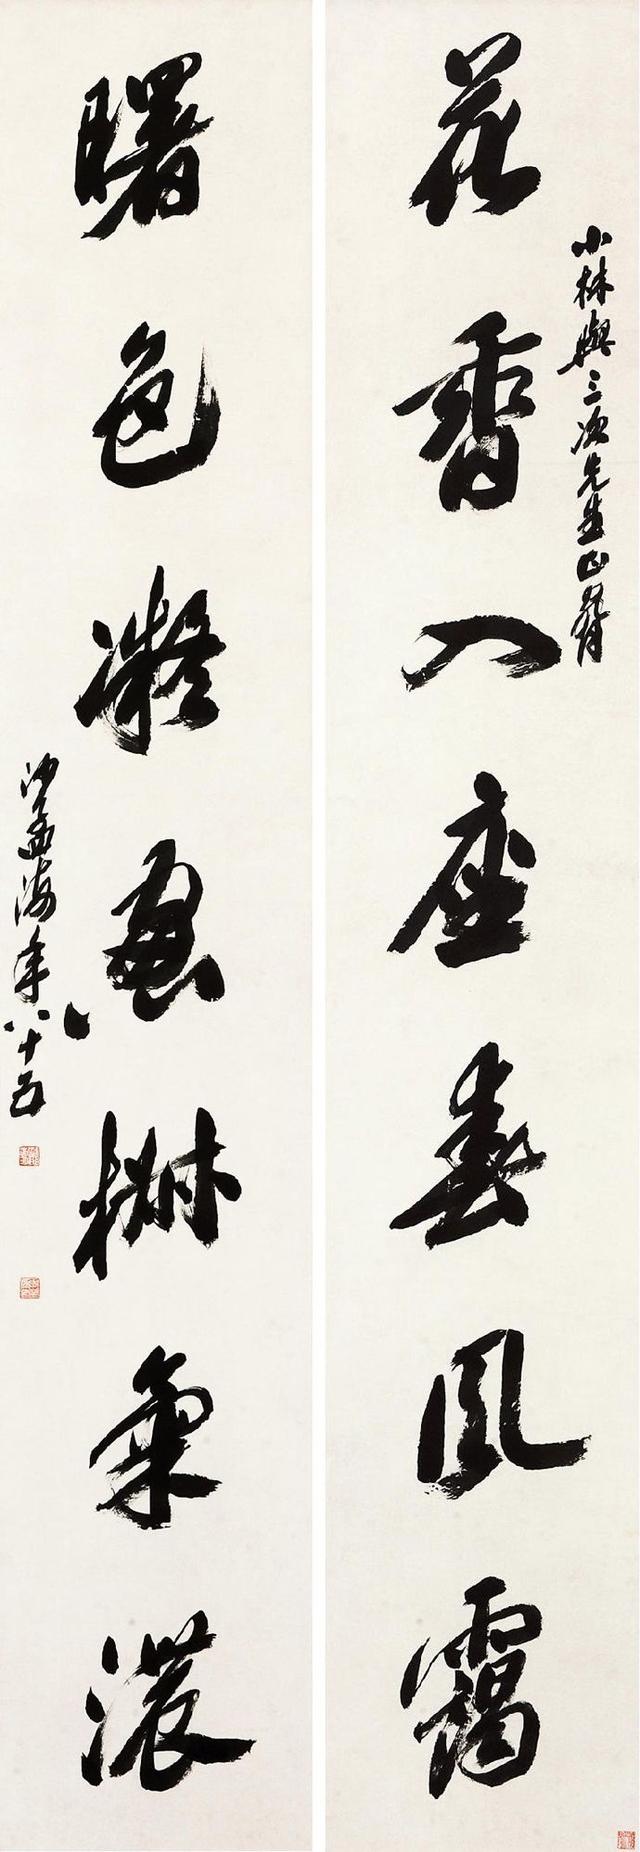 花香入座春風靄
小林與三次先生正
曙色凝窗樹氣濃
沙孟海年八十五